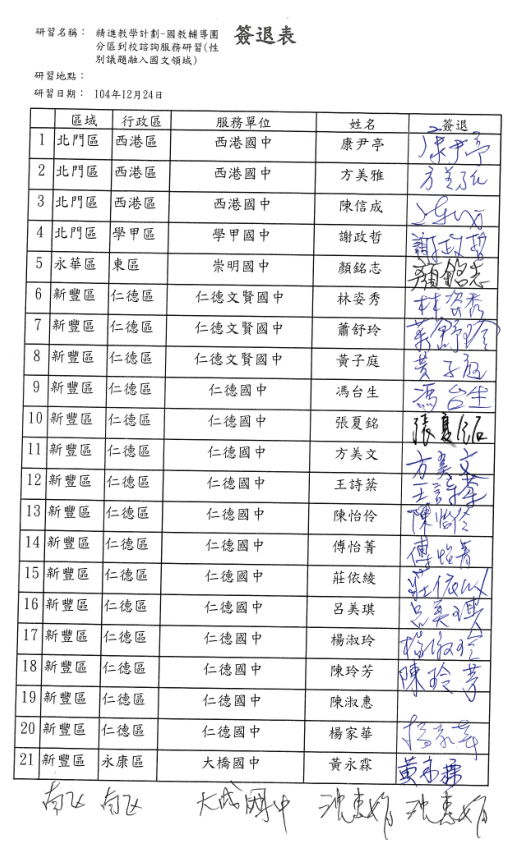 簽退表
研習名稱： 精進教學計劃-國教輔導團
分區到校諮詢服務研習(性
別議題融入國文領域)
研習地點：
研習日期： 104年12月24日
區域 行政區 服務單位 姓名 簽退
1 北門區 西港區 西港國中 康尹亭 康尹亭
2 北門區 西港區 西港國中 方美雅 方美雅
3 北門區 西港區 西港國中 陳信成
4 北門區 學甲區 學甲國中 謝政哲 謝政哲
5 永華區 東區 崇明國中 顏銘志 顏銘志
6 新豐區 仁德區 仁德文賢國中 林姿秀 林姿秀
7 新豐區 仁德區 仁德文賢國中 蕭舒玲 蕭舒玲
8 新豐區 仁德區 仁德文賢國中 黃子庭 黃子庭
9 新豐區 仁德區 仁德國中 馮台生 馮台生
10 新豐區 仁德區 仁德國中 張夏銘 張夏銘
11 新豐區 仁德區 仁德國中 方美文 方美文
12 新豐區 仁德區 仁德國中 王詩棻 王詩棻
13 新豐區 仁德區 仁德國中 陳怡伶 陳怡伶
14 新豐區 仁德區 仁德國中 傅怡菁 傅怡菁
15 新豐區 仁德區 仁德國中 莊依綾 莊依綾
16 新豐區 仁德區 仁德國中 呂美琪 呂美琪
17 新豐區 仁德區 仁德國中 楊淑玲 楊淑玲
18 新豐區 仁德區 仁德國中 陳玲芳 陳玲芳
19 新豐區 仁德區 仁德國中 陳淑惠
20 新豐區 仁德區 仁德國中 楊家華 楊家華
21 新豐區 永康區 大橋國中 黃永霖 黃永霖
南區 南區 大成國中 沈惠娟 沈惠娟